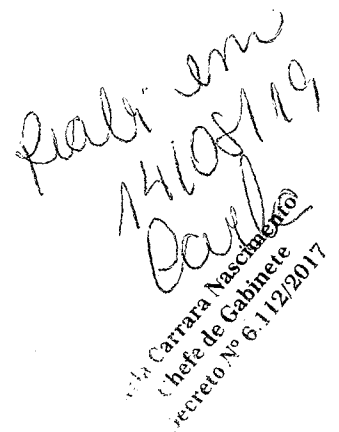 Recebi em
14/08/19
Carla
Carrara Nascimento
Chefe de Gabinete
Decreto Nº 6.112/2017